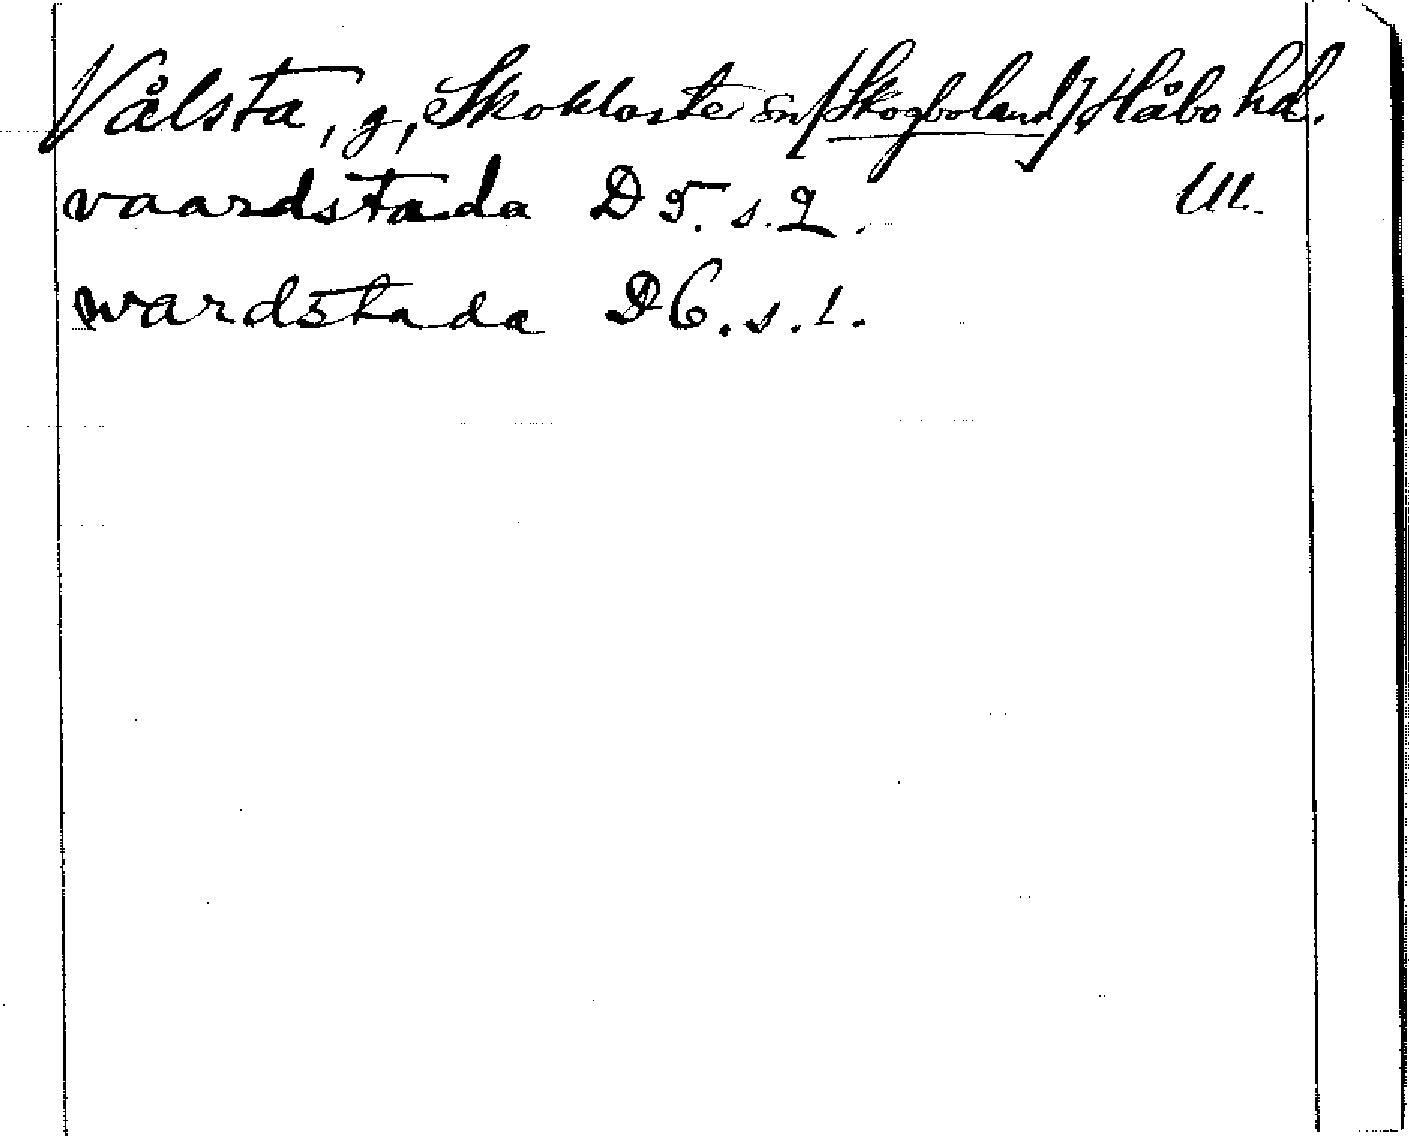 Vålsta, g, Skokloste sn [Skogboland], Håbo hd.
vaardstada D 5. s. 2. Ul.
wardstada D6. s. 1.